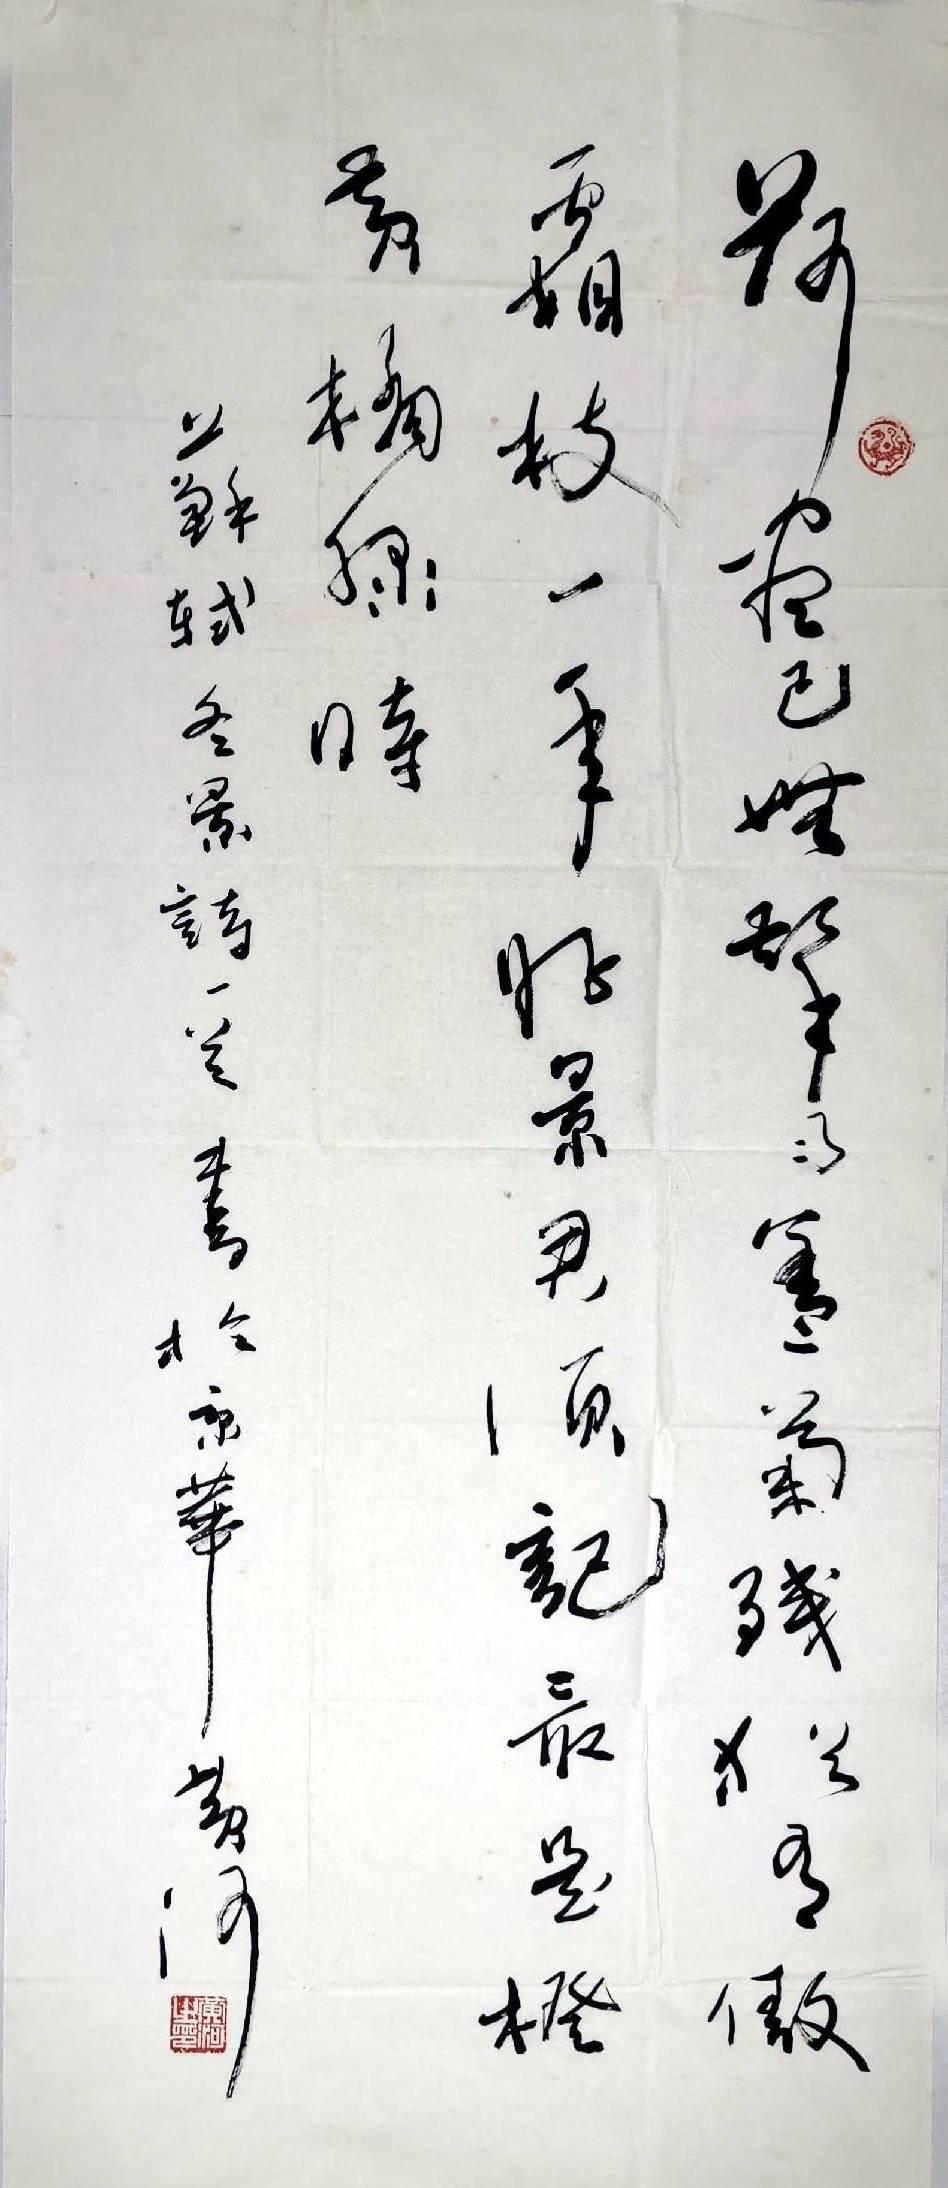 荷盡已無擎雨蓋菊殘猶有傲
霜枝一年好景君須記最是橙
黄橘綠時
以蘇軾冬景詩一首書於京華黄河
黃河之印